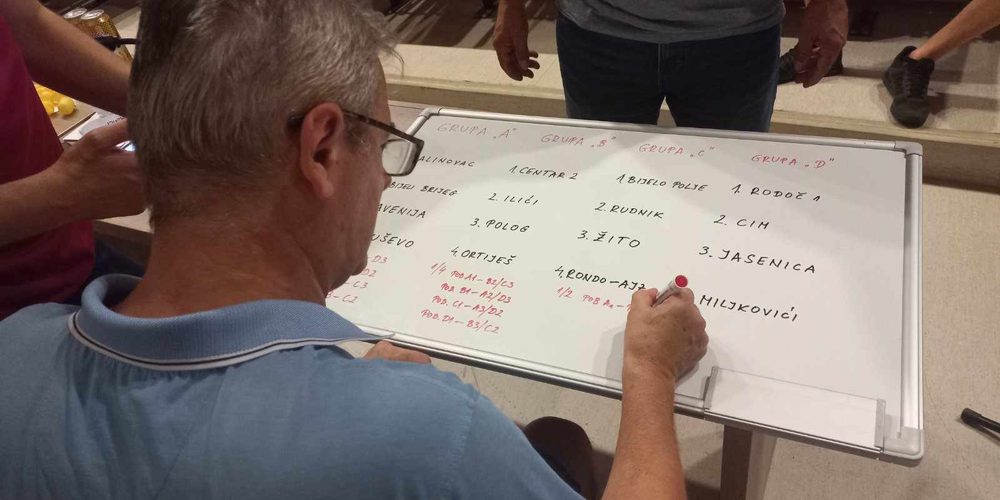 GRUPA „A"
ALINOVAC
BIJELI BRIJEG
AVENIJA
UŠEVO
D3
D2
C3
C2
GRUPA „B"
1. CENTAR 2
2. ILIĆI
3. POLOG
4. ORTIJEŠ
1/4 POB A1 - B2/C3
POB. B1 - A2/D3
POB. C1 - A3/D2
POB. D1 - B3/C2
GRUPA „C"
1. BIJELO POLJE
2. RUDNIK
3. ŽITO
4. RONDO-
1/2 POB
GRUPA „D"
1. RODOČ 1
2. CIM
3. JASENICA
MILJKOVIĆI